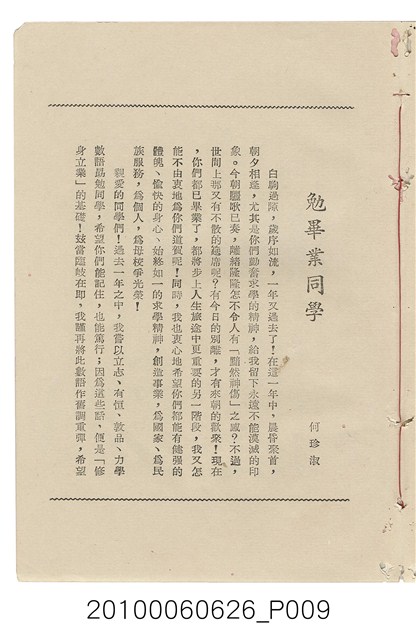 勉畢業同學
何珍淑
白駒過隙，歲序如流，一年又過去了！在這一年中，晨昏聚首，
朝夕相逢，尤其是你們勤奮求學的精神，給我留下永遠不能漠滅的印
象。今朝驪歌已奏，離緒隆隆怎不令人有「黯然神傷」之感？不過，
世間上那又有不散的筵席呢？有今日的別離，才有來朝的歡聚！現在
，你們都已畢業了，都將步上人生旅途中更重要的另一階段，我又怎
能不由衷地為你們道賀呢！同時，我也衷心地希望你們都能有健强的
體魄、愉快的身心、始終如一的求學精神，創造事業，為國家、為民
族服務，為個人，為母校爭光榮！
親愛的同學們！過去一年之中，我嘗以立志、有恒、敦品、力學
數語勗勉同學，希望你們能記住，也能篤行；因為這些話，便是「修
身立業」的基礎！玆當臨岐在即，我謹再將此數語作舊調重彈，希望
20100060626_P009